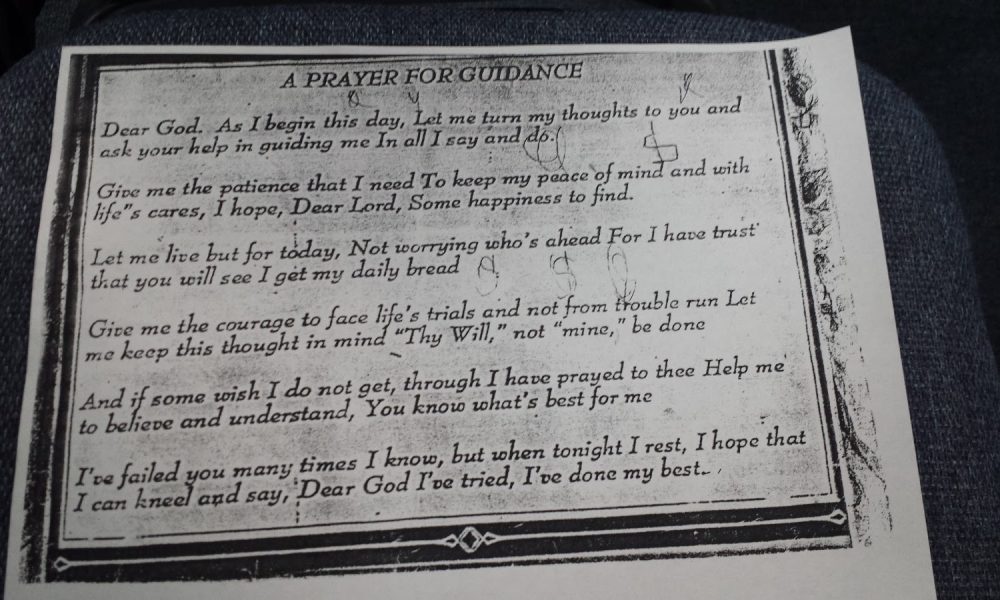 A PRAYER FOR GUIDANCE
Dear God. As I begin this day, Let me turn my thoughts to you and
ask your help in guiding me In all I say and do.
Give me the patience that I need To keep my peace of mind and with
life"s cares, I hope, Dear Lord, Some happiness to find.
Let me live but for today, Not worrying who's ahead For I have trust
that you will see I get my daily bread
Give me the courage to face life's trials and not from trouble run Let
me keep this thought in mind "Thy Will," not "mine," be done
And if some wish I do not get, through I have prayed to thee Help me
to believe and understand, You know what's best for me
I've failed you many times I know, but when tonight I rest, I hope that
I can kneel and say, Dear God I've tried, I've done my best.